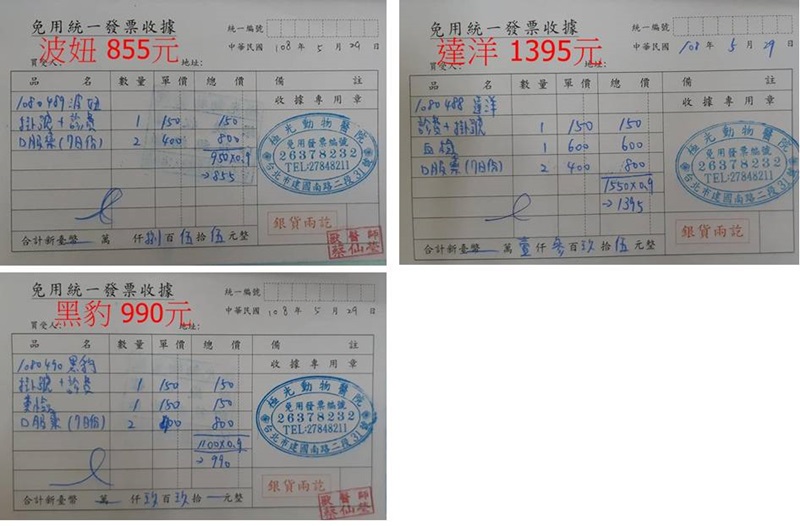 免用統一發票收據
統一編號
波妞 855元
中華民國 108 年 5 月 29 日
買受人: 地址:
品 名 數量 單價 總 價 備 註
1080489 波妞 收據專用章
掛號+診費 1 150 150
D股藥(7日份) 2 400 800
950x0.9
→855
極光動物醫院
免用發票編號
26378232
TEL:27848211
台北市建國南路二段31號
銀貨兩訖
合計新臺幣 萬 仟 捌 百 伍 拾 伍 元整
歐醫師
蔡仙瑩
免用統一發票收據
統一編號
達洋 1395元
中華民國 108 年 5 月 29 日
買受人: 地址:
品 名 數量 單價 總 價 備 註
1080488 達洋 收據專用章
診費+掛號 1 150 150
1 600 600
D股藥(7日份) 2 400 800
1550x0.9
→1395
極光動物醫院
免用發票編號
26378232
TEL:27848211
台北市建國南路二段31號
銀貨兩訖
合計新臺幣 萬 壹 仟 參 百 玖 拾 伍 元整
免用統一發票收據
統一編號
黑豹 990元
中華民國 108 年 5 月 29 日
買受人: 地址:
品 名 數量 單價 總 價 備 註
1080490 黑豹 收據專用章
掛號+診費 1 150 150
1 150 150
D股藥(7日份) 2 400 800
1100x0.9
→990
極光動物醫院
免用發票編號
26378232
TEL:27848211
台北市建國南路二段31號
銀貨兩訖
合計新臺幣 萬 仟 玖 百 玖 拾 元整
歐醫師
蔡仙瑩